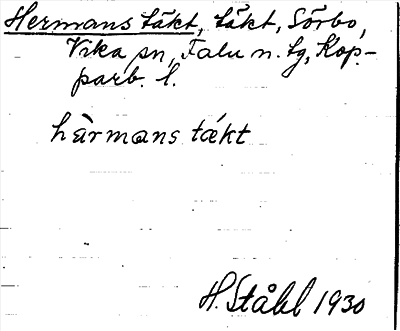 Hermans täkt, täkt, Sörbo,
Vika sn, Falu n. tg, Kop-
parb. l.
hàrmans tékt
H. Ståhl 1930